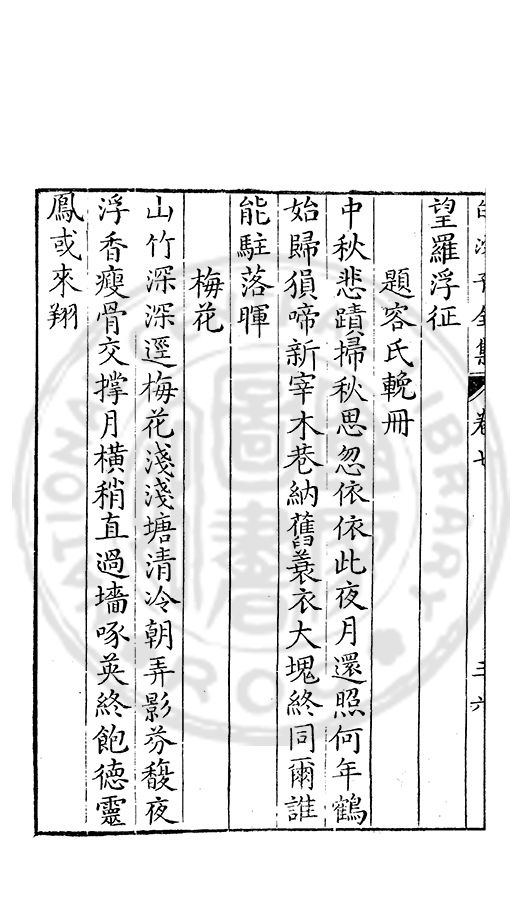 白沙子全集 卷七 三六
望羅浮征
題容氏輓冊
中秋悲蹟掃秋思忽依依此夜月還照何年鶴
始歸猿啼新宰木巷納舊蓑衣大塊終同爾誰
能駐落暉
梅花
山竹深深逕梅花淺淺塘清冷朝弄影芬馥夜
浮香瘦骨交撐月橫稍直過墻啄英終飽德靈
鳳或來翔